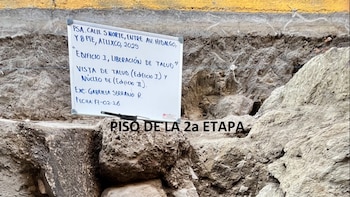 PSA. CALLE 3 NORTE, ENTRE AV. HIDALGO
Y 8 PTE, ATLIXCO, 2025
"EDIFICIO I, LIBERACIÓN DE TALUD"
VISTA DE TALUD (EDIFICIO I) Y
NÚCLEO DE (EDIFICIO II).
EXC. GABRIELA SERRANO R.
FECHA 17-02-25
PISO DE LA 2a ETAPA